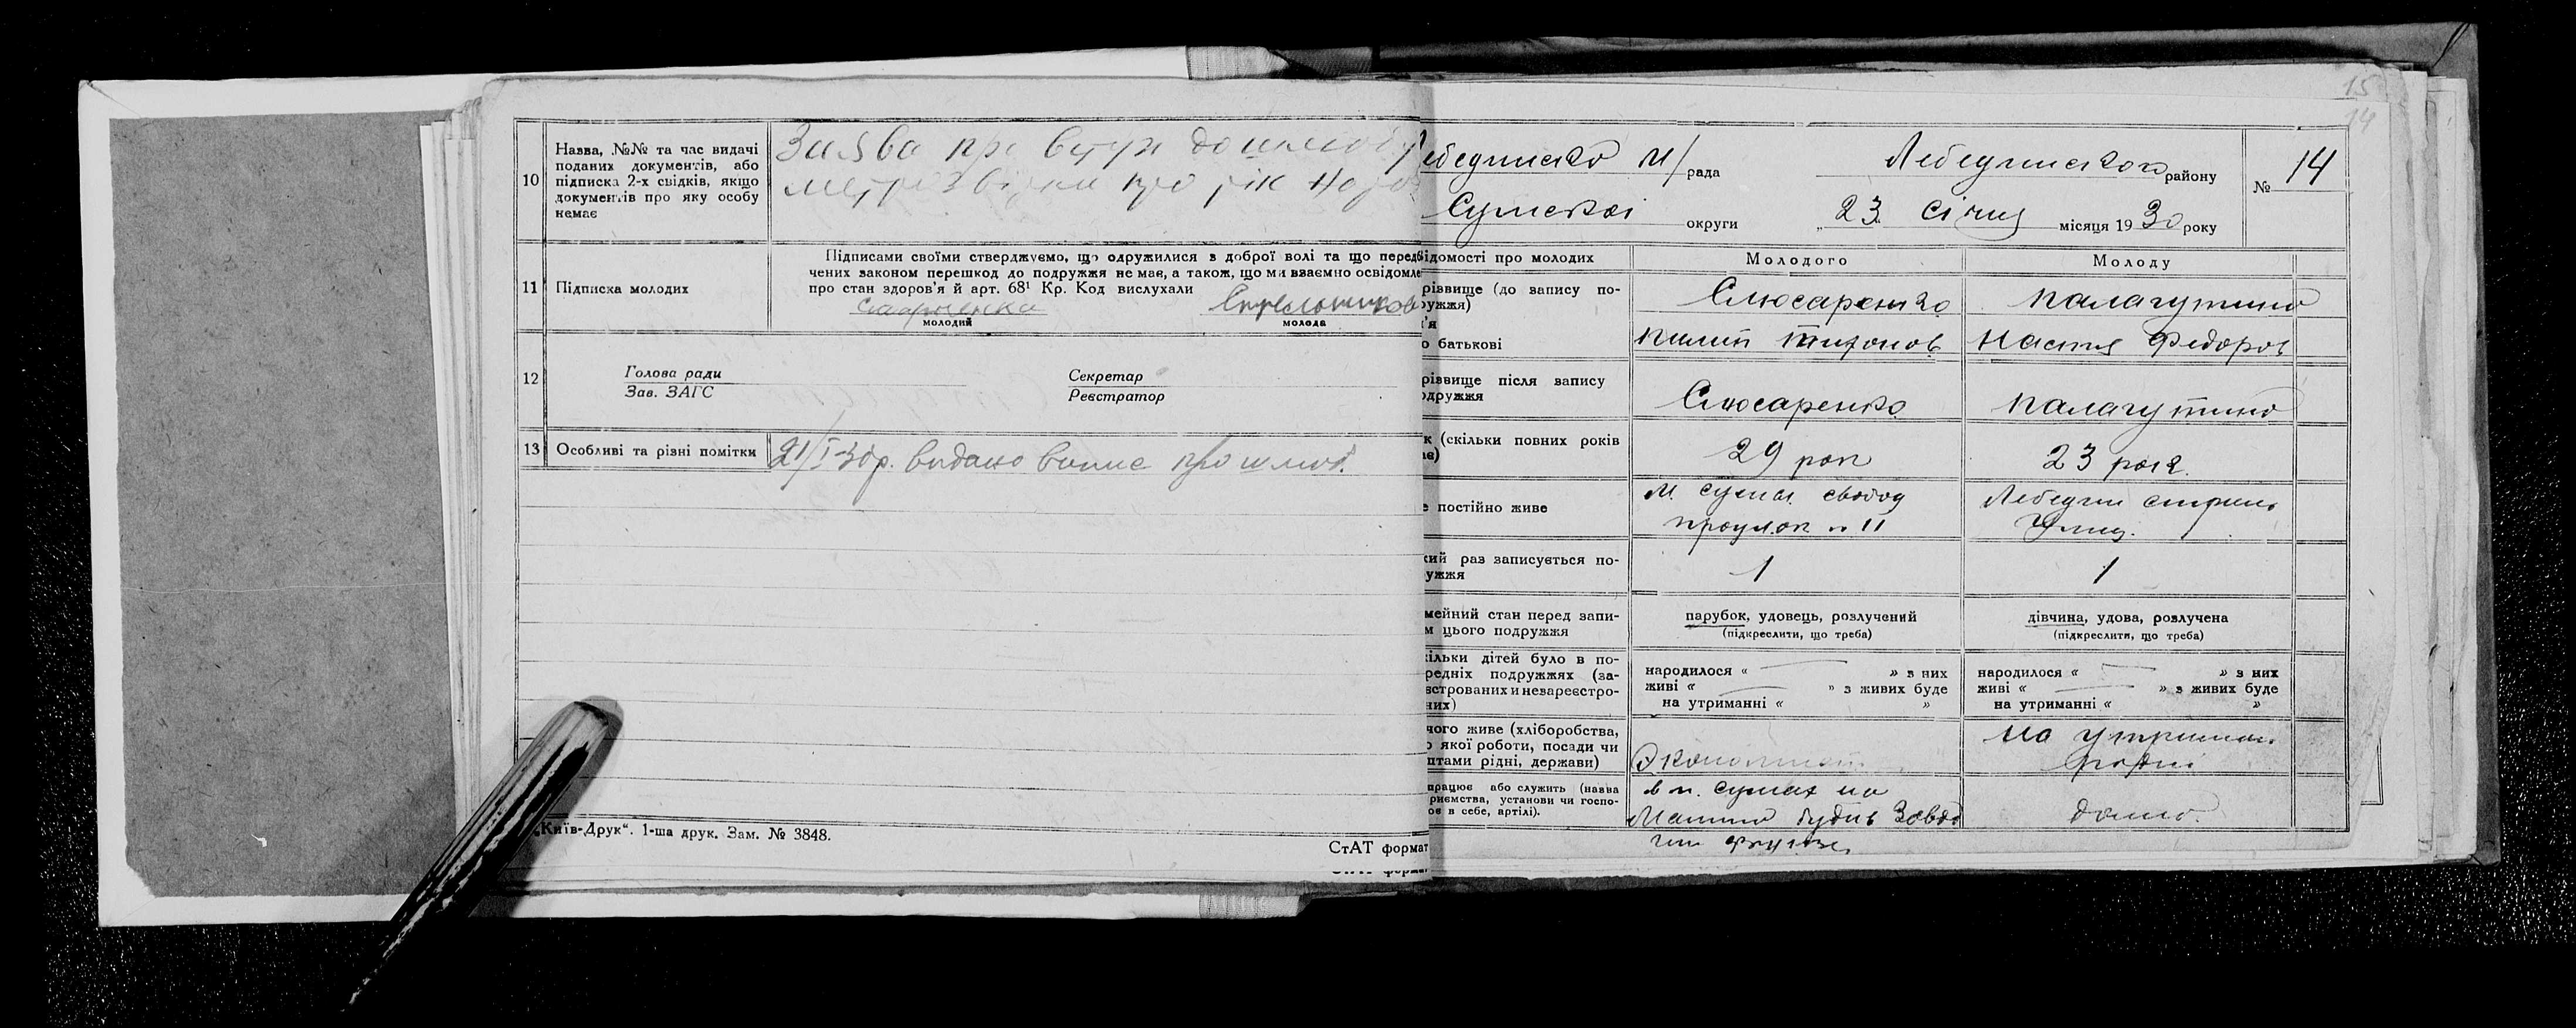 10
Назва, №№ та час видачі
поданих документів, або
підписка 2-х свідків, якщо
документів про яку особу
немає
Заява про вступ до шлюбу
про рік
11
Підписка молодих
Підписами своїми стверджуємо, що одружилися з доброї волі та що перед
чених законом перешкод до подружжя не має, а також, що ми взаємно освідомле
про стан здоров'я й арт. 68¹ Кр. Код вислухали
молодий
молода
12
Голова ради
Зав. ЗАГС
Секретар
Реєстратор
13
Особливі та різні помітки
21/I-30р. видано випис про шлюб.
„Київ-Друк". 1-ша друк. Зам. № 3848.
СтАТ формат
15
14
м/рада
Лебединського району
№ 14
Сумської округи
„23 січня місяця 1930 року
ідомості про молодих
Молодого
Молоду
різвище (до запису по-
ружжя)
Слюсаренко
Палагутина
м'я
о батькові
Пилип Тихонов
Настя Федоров
різвище після запису
одружжя
Слюсаренко
Палагутина
к (скільки повних років
ає)
29 рок
23 рок.
е постійно живе
М. Суми
проулок № 11
Лебедин
улиц.
кий раз записується по-
ужжя
1
1
мейний стан перед запи-
м цього подружжя
парубок, удовець, розлучений
(підкреслити, що треба)
дівчина, удова, розлучена
(підкреслити, що треба)
ільки дітей було в по-
редніх подружжях (за-
встрованих и незареєстро-
них)
народилося « » з них
живі « » з живих буде
на утриманні « »
народилося « » з них
живі « » з живих буде
на утриманні « »
чого живе (хліборобства,
о якої роботи, посади чи
штами рідні, держави)
Экономист
на утриман.
рідні
працює або служить (назва
риємства, установи чи госпо-
ов в себе, артілі).
в м. Сумах на
Машино будів Завод
дома.